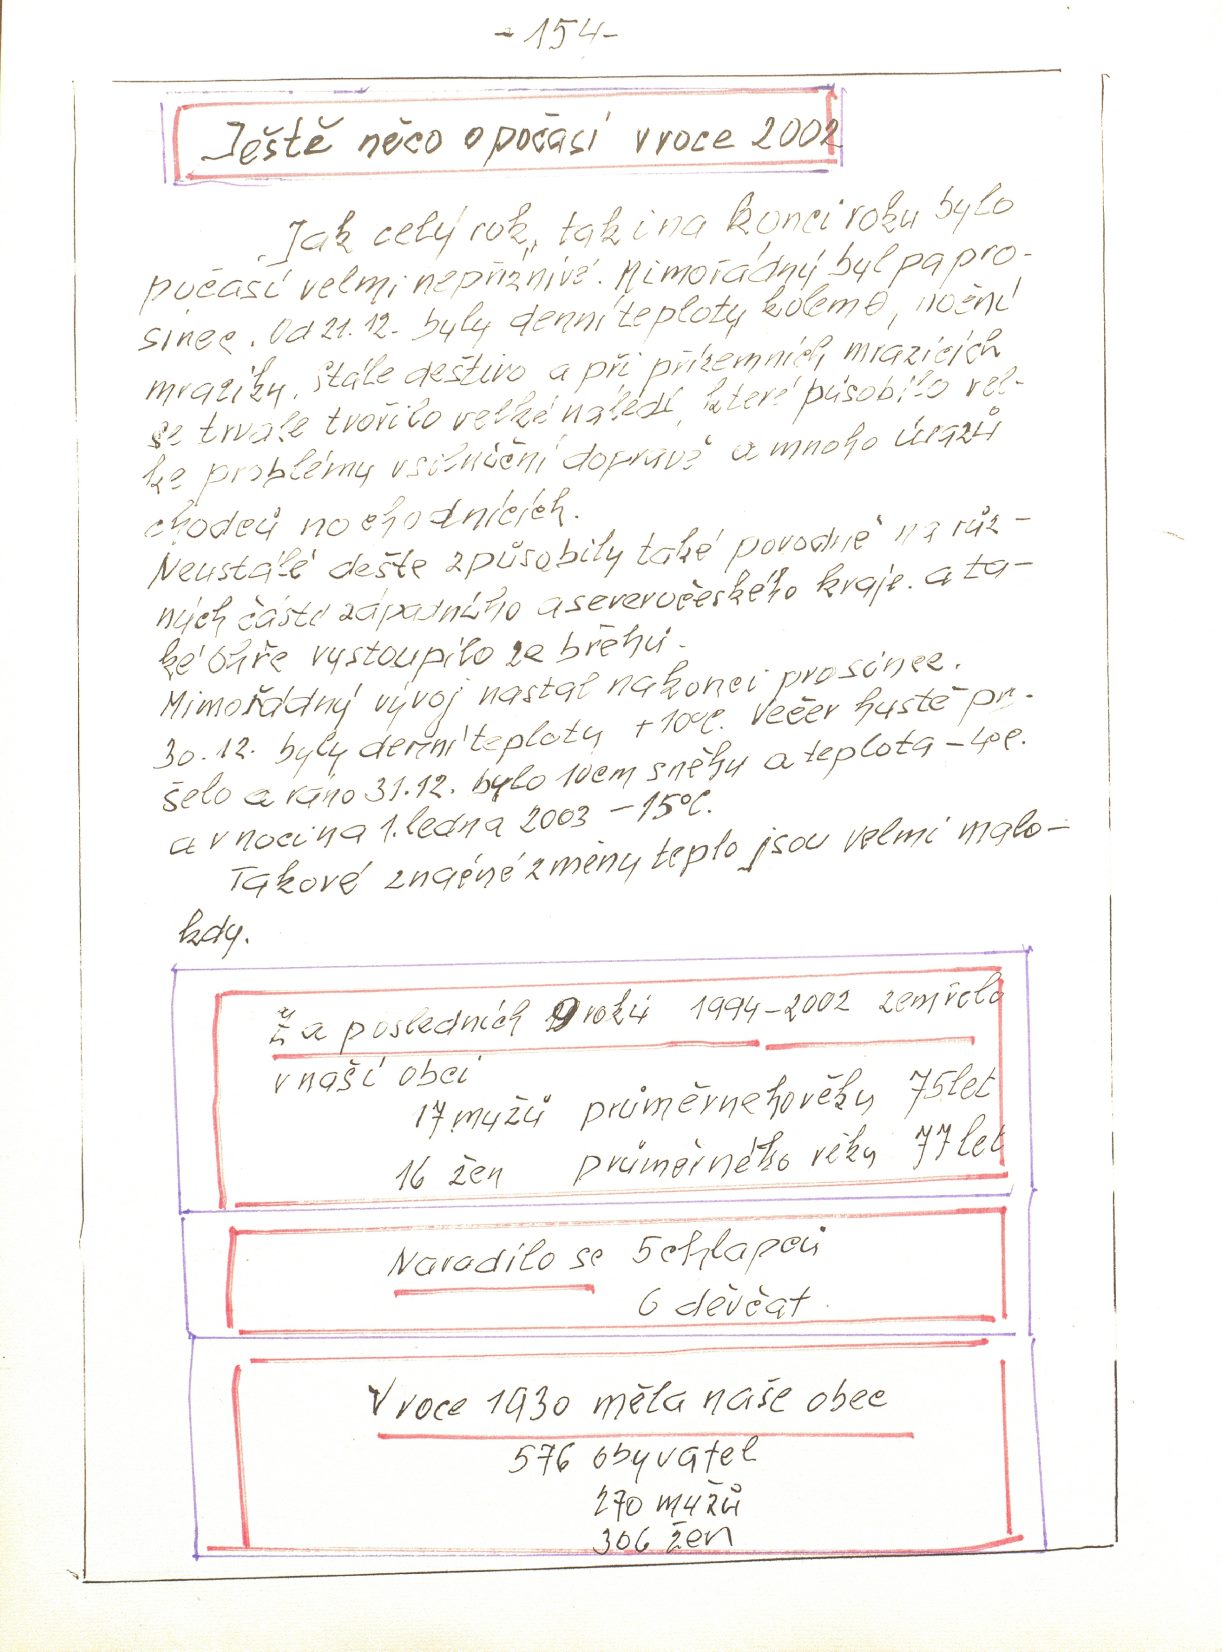 - 154 -
Ještě něco o počasí v roce 2002
Jak celý rok, tak i na konci roku bylo
počasí velmi nepříznivé. Mimořádný byl pa pro-
sinec. Od 21.12. byly denní teploty kolem 0, noční
mrazíky. Stále deštivo a při přízemních mrazících
se trvale tvořilo velké náledí, které působilo vel-
ke problémy v silniční dopravě a mnoho úrazů
chodců no chodnících.
Neustálé deště způsobily také povodně na růz-
ných části západního a severočeského kraje. a ta-
ké Ohře vystoupilo ze břehů.
Mimořádný vývoj nastal na konci prosince.
30.12. byly denní teploty +10°C. Večer hustě pr-
šelo a ráno 31.12. bylo 10cm sněhu a teplota -4°C.
a v noci na 1. ledna 2003 -15°C.
Takové značné změny teplo jsou velmi málo-
kdy.
Za posledních 9 roků 1994-2002 zemřelo
v naší obci
17 mužů průměrneho věku 75 let
16 žen průměrného věku 77 let
Narodilo se 5 chlapců
6 děvčat
V roce 1930 měla naše obec
576 obyvatel
270 mužů
306 žen